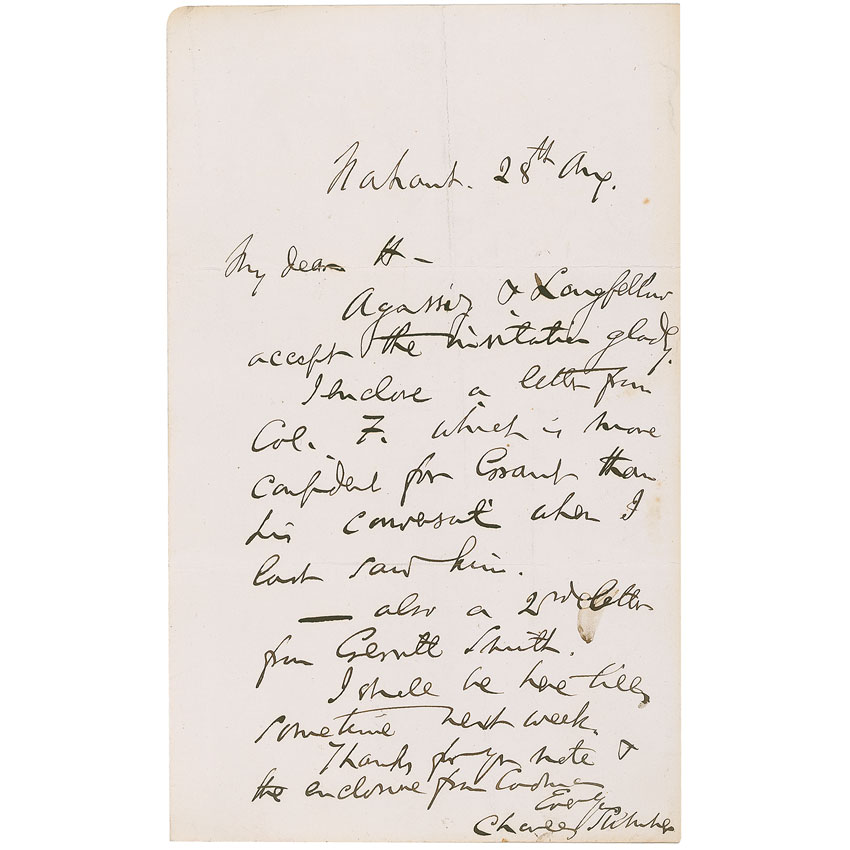 Nahant. 28th Aug.
My dear H –
Agassiz & Longfellow
accept the invitation gladly.
I enclose a letter from
Col. F. which is more
confident for Grant than
his conversat'n when I
last saw him.
— also a 2nd letter
from Gerritt Smith.
I shall be here till
sometime next week.
Thanks for yr note &
the enclosure from
Ever Yrs
Charles Sumner